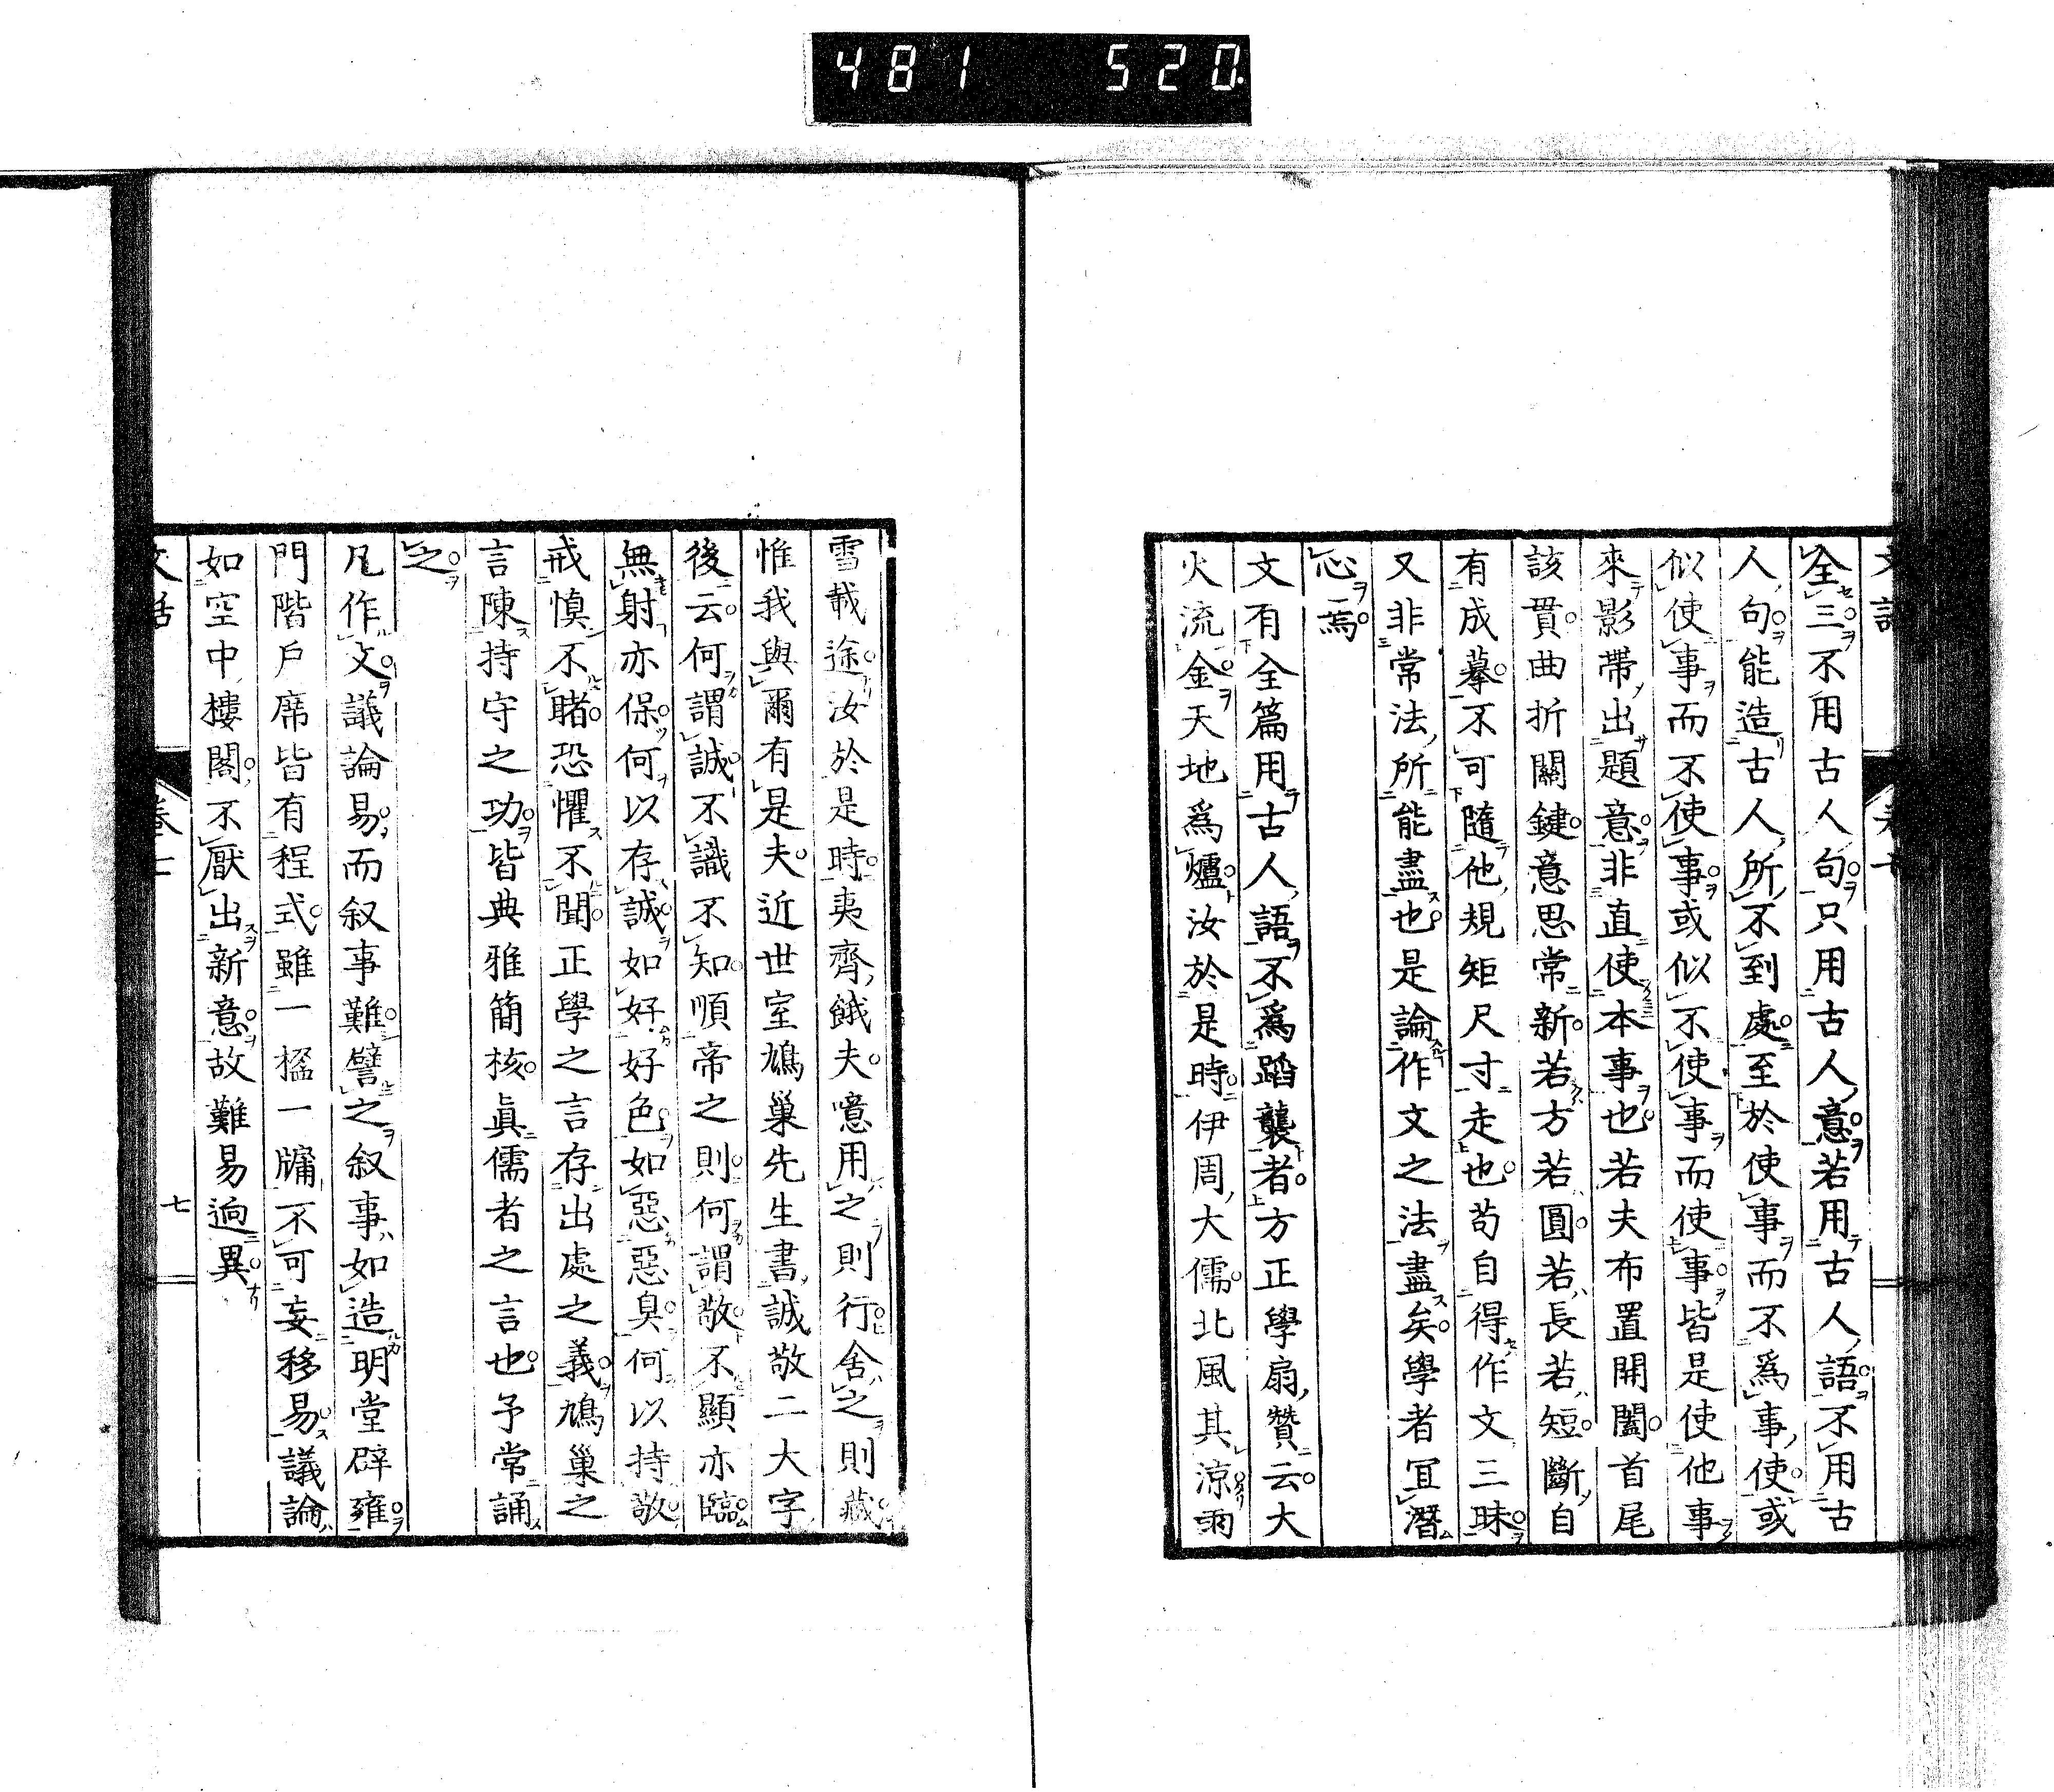 481 520
全三不用古人句只用古人意若用古人語不用古
人句能造古人所不到處至於使事而不爲事使或
似使事而不使事或似不使事而使事皆是使他事
來影帶出題意非直使本事也若夫布置開闔首尾
該貫曲折關鍵意思常新若方若圓若長若短斷自
有成摹不可隨他規矩尺寸走也苟自得作文三昧
又非常法所能盡也是論作文之法盡矣學者冝潛
心焉
文有全篇用古人語不爲蹈襲者方正學扇贊云大
火流金天地爲爐汝於是時伊周大儒北風其涼雨
雪載途汝於是時夷齊餓夫噫用之則行舍之則藏
惟我與爾有是夫近世室鳩巢先生書誠敬二大字
後云何謂誠不識不知順帝之則何謂敬不顯亦臨
無射亦保何以存誠如好好色如惡惡臭何以持敬
戒愼不睹恐懼不聞正學之言存出處之義鳩巢之
言陳持守之功皆典雅簡核眞儒者之言也予常誦
之
凡作文議論易而叙事難譬之叙事如造明堂辟雍
門階戶席皆有程式雖一楹一牖不可妄移易議論
如空中樓閣不厭出新意故難易逈異
文話 卷七 七